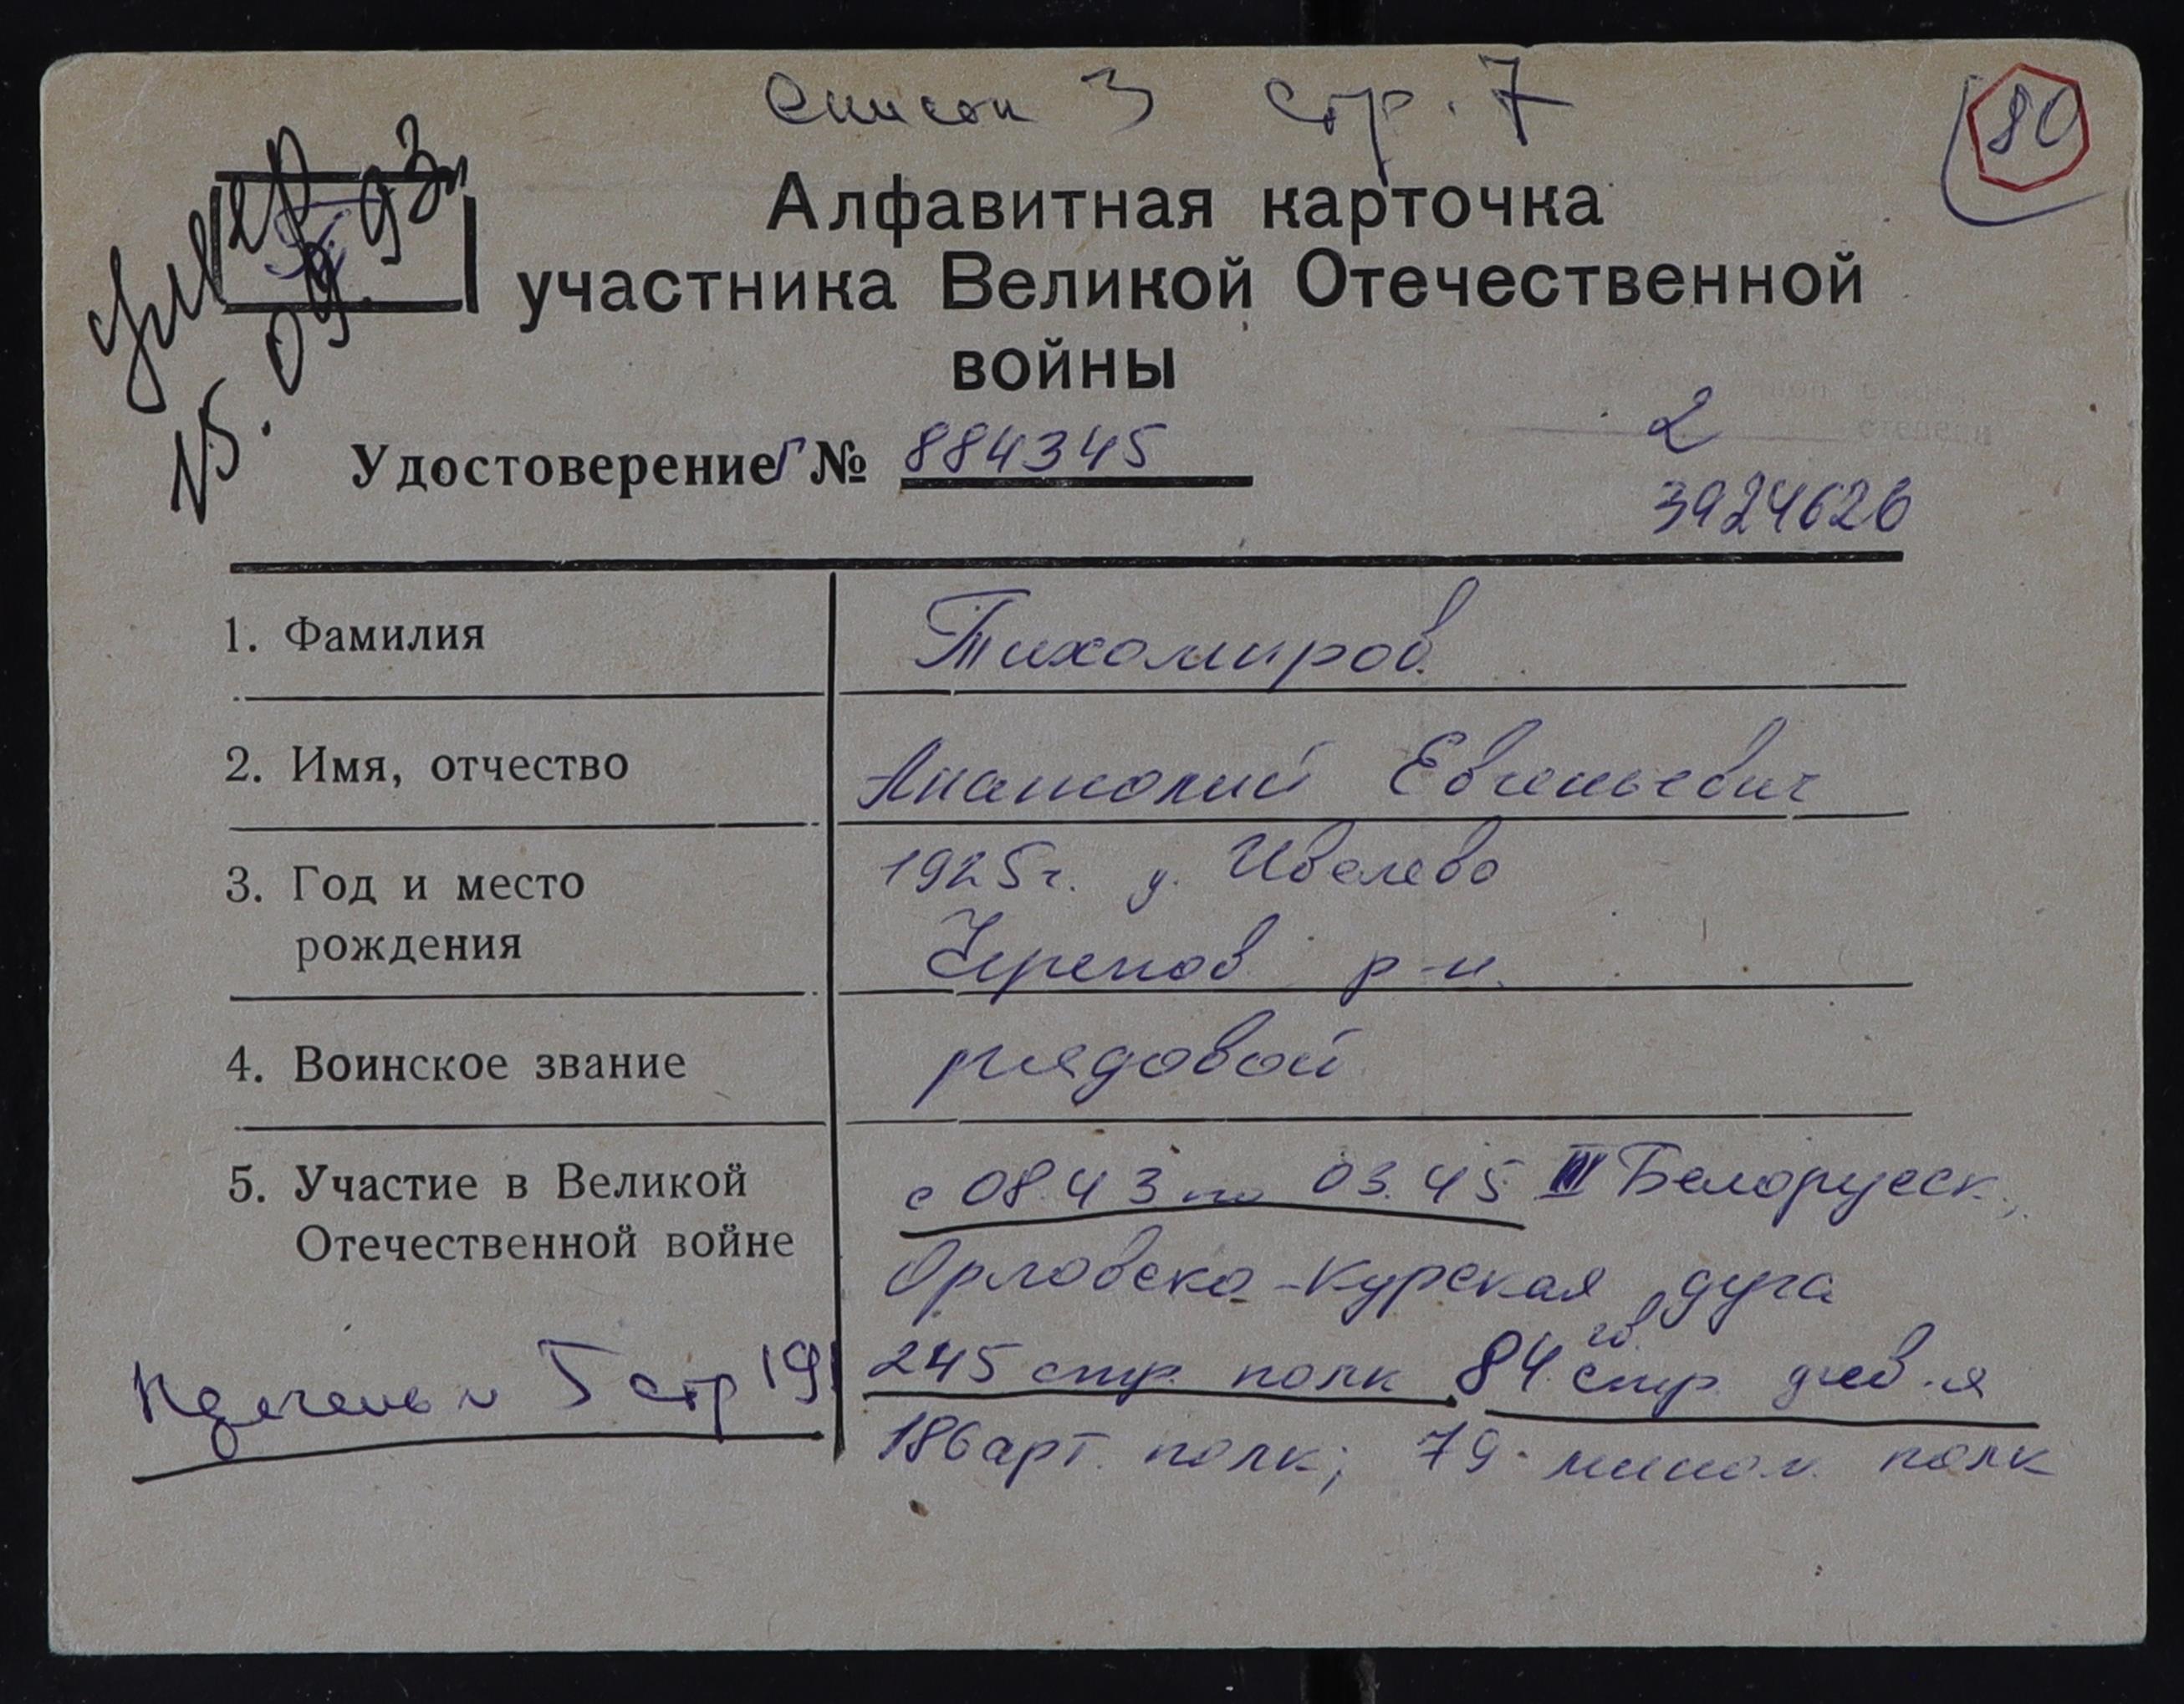 Список 3 стр. 7
80
умер
15.09.93г
Т
Алфавитная карточка
участника Великой Отечественной
войны
Удостоверение Г № 884345
2
3924626
1. Фамилия
Тихомиров
2. Имя, отчество
Анатолий Евгеньевич
3. Год и место
рождения
1925г. д. Ивелево
Черепов р-н.
4. Воинское звание
рядовой
5. Участие в Великой
Отечественной войне
с 08.43 по 03.45 III Белорусск.,
Орловско-Курская дуга
245 стр. полк 84 гв стр. див-я
186 арт. полк; 79 мином. полк
Т стр 19